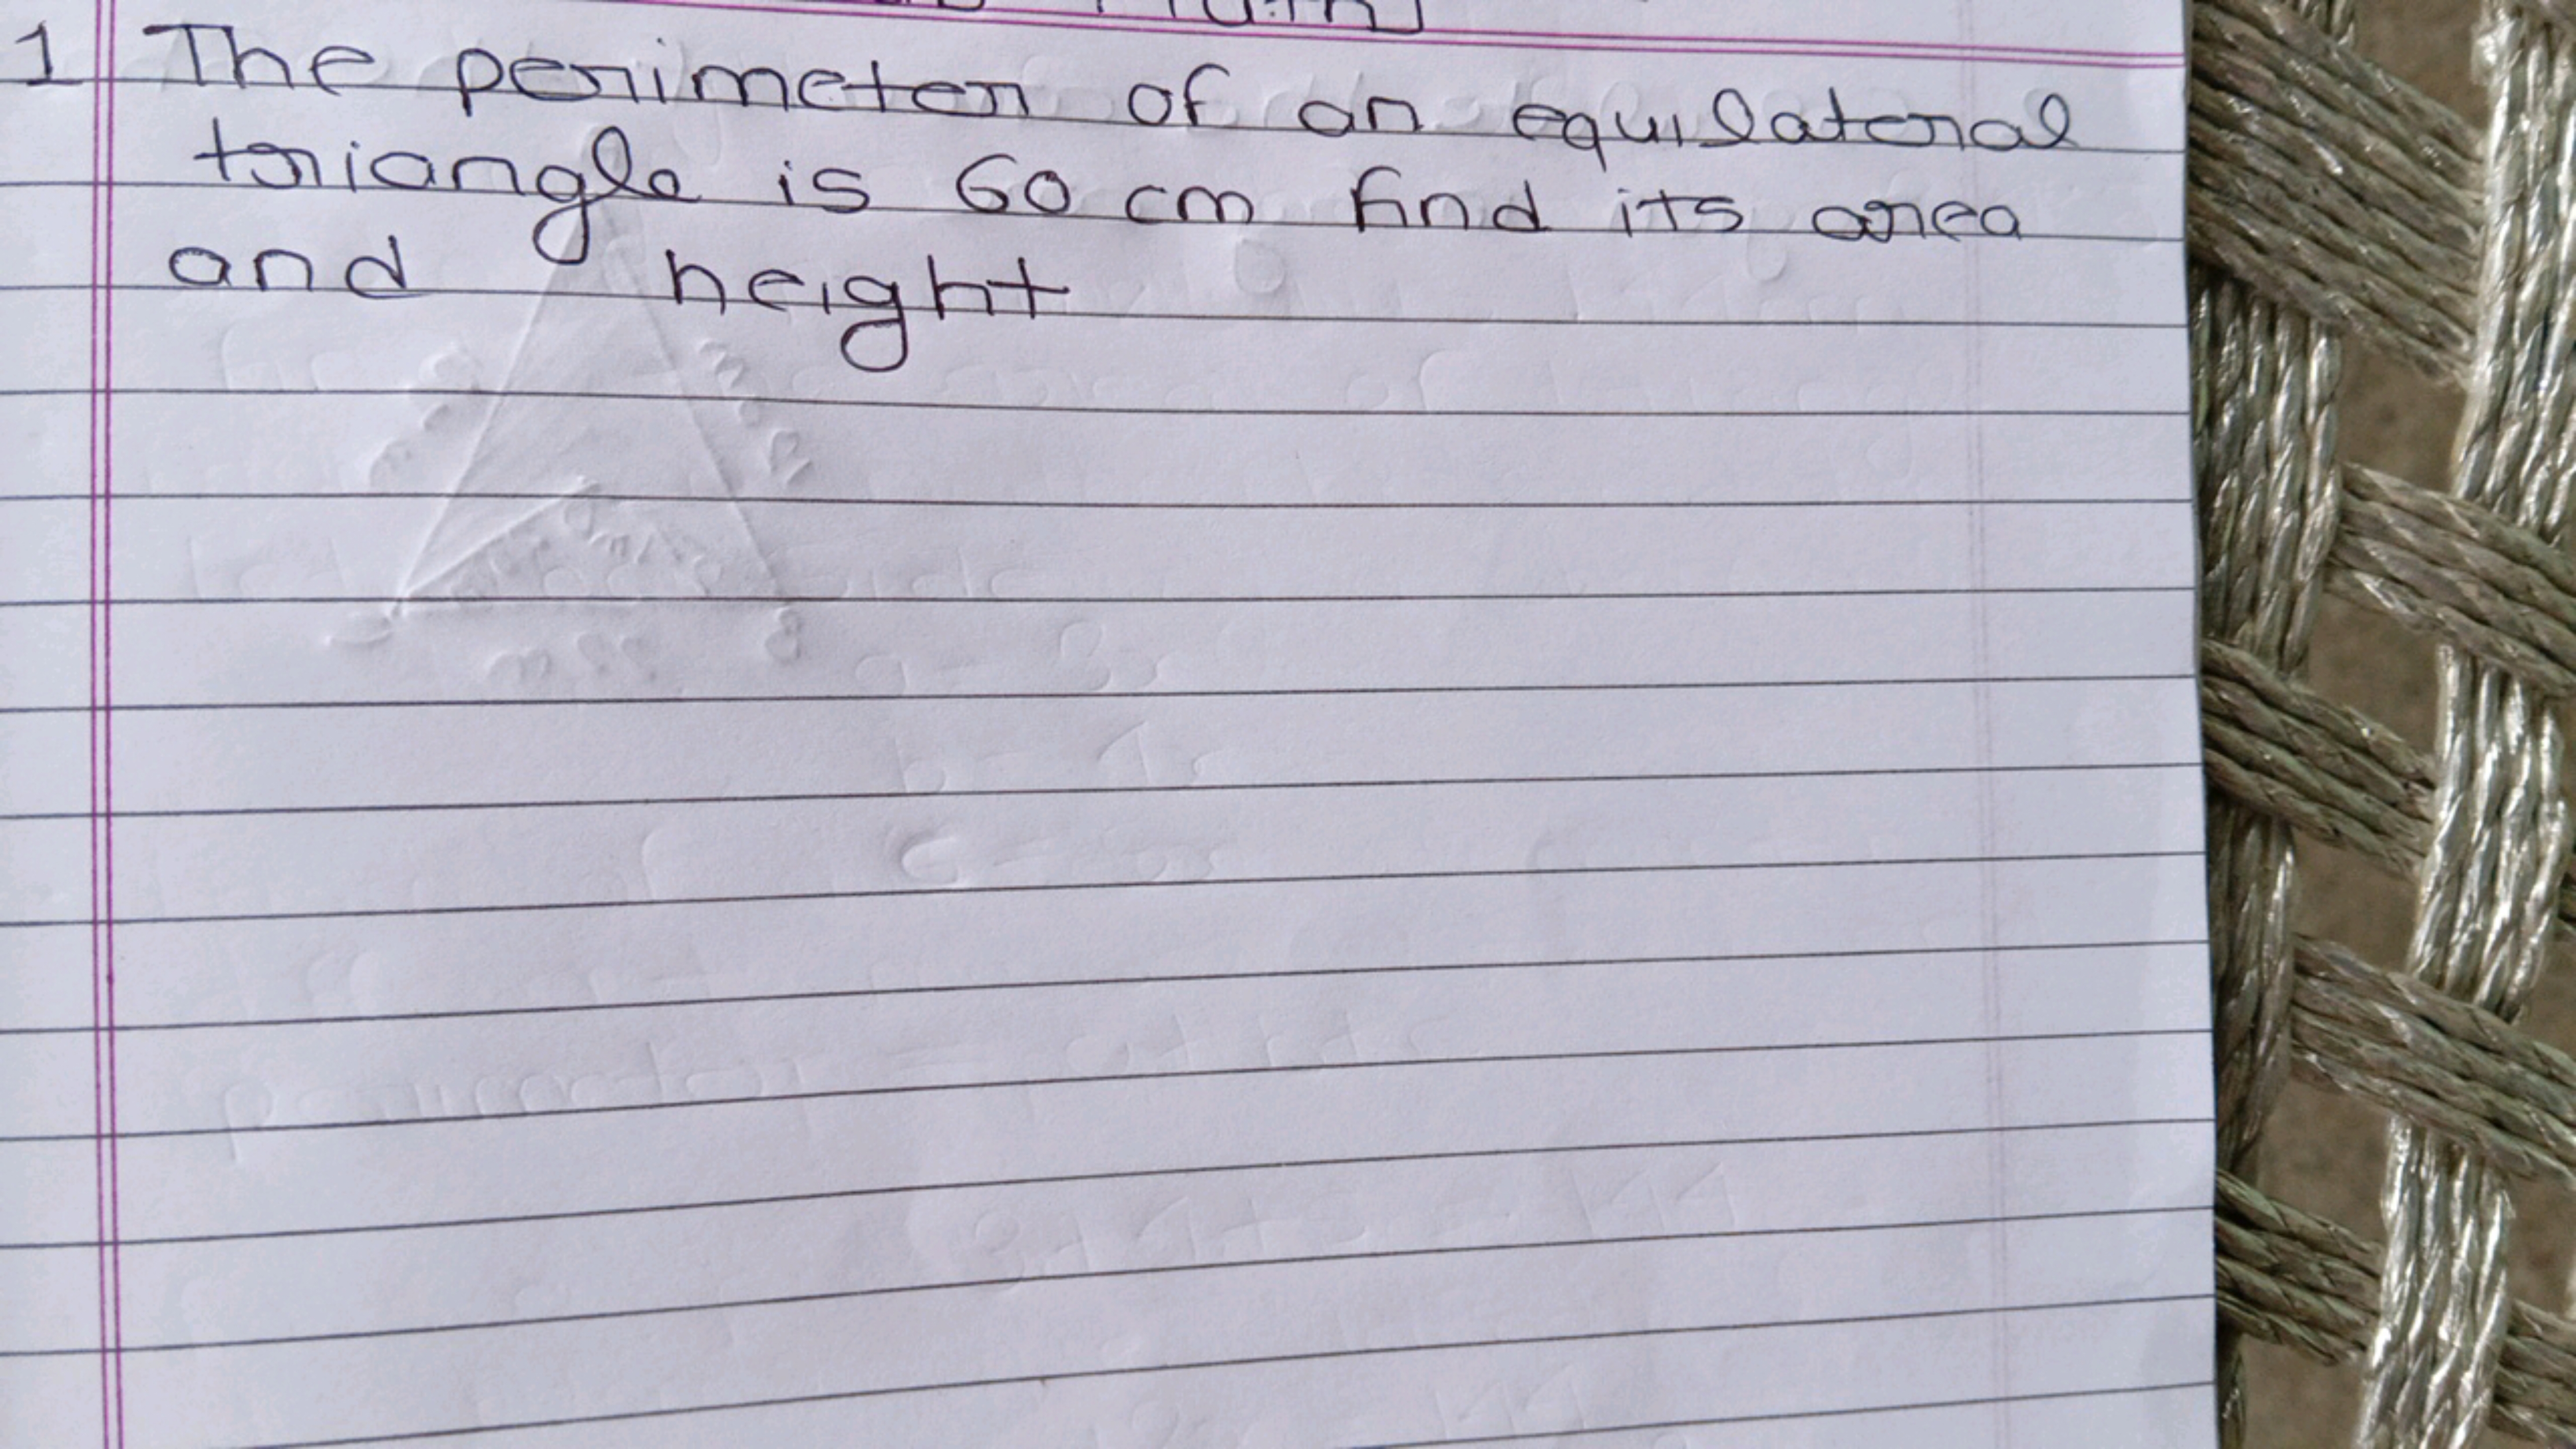 1 The perimeter of an equilateral
triangle is 60 cm find its area
and height